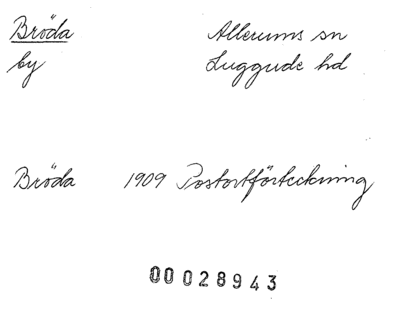 Bröda Allerums sn
by Luggude hd
Bröda 1909 Postortförteckning
00028943